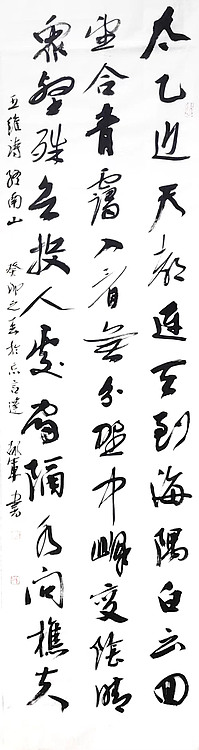 太乙近天都連天到海隅白云回
望合青靄入看無分野中峰變陰晴
眾壑殊欲投人處宿隔水问樵夫
王維诗終南山 癸卯之春於京
軍書